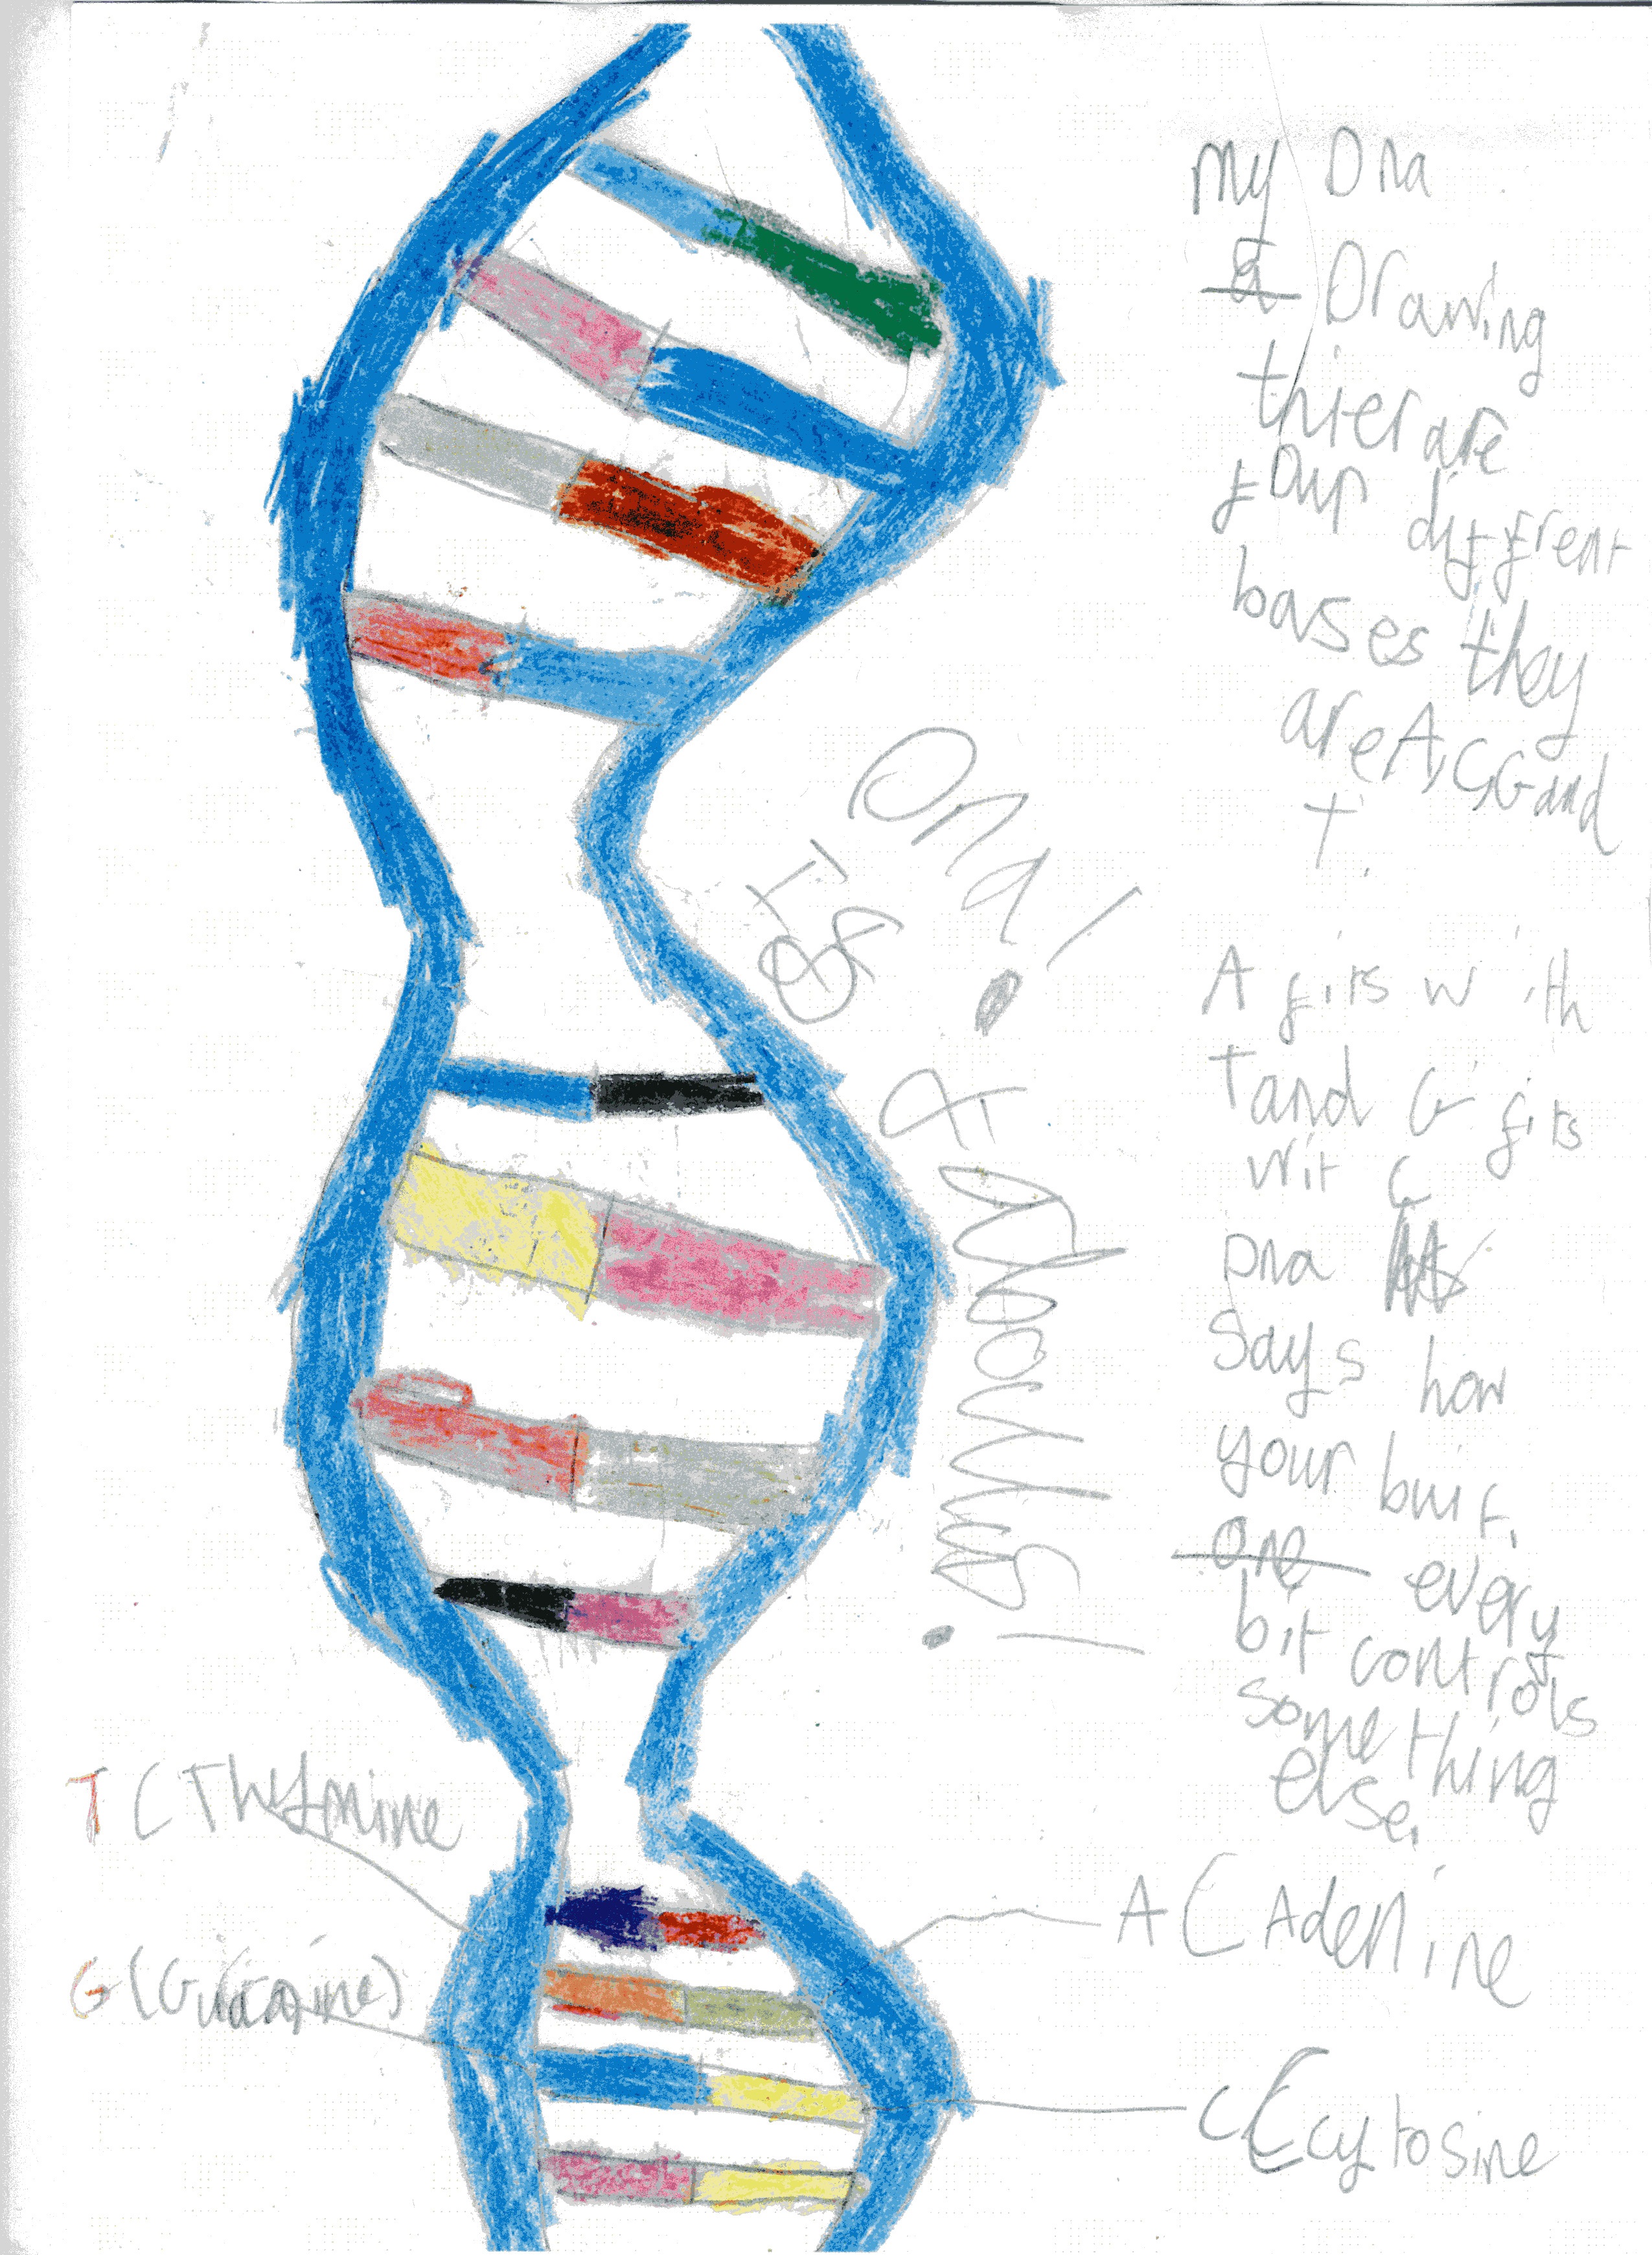 my Dna
a Drawing
thier are
four diffrent
bases they
are A,C,G and
T.
A fits with
T and G fits
wit C
Dna
says how
your buit.
one every
bit controls
something
else.
Dna!
IS
A
T (Thymine
G (Guanine)
A (Adenine
C (cytosine